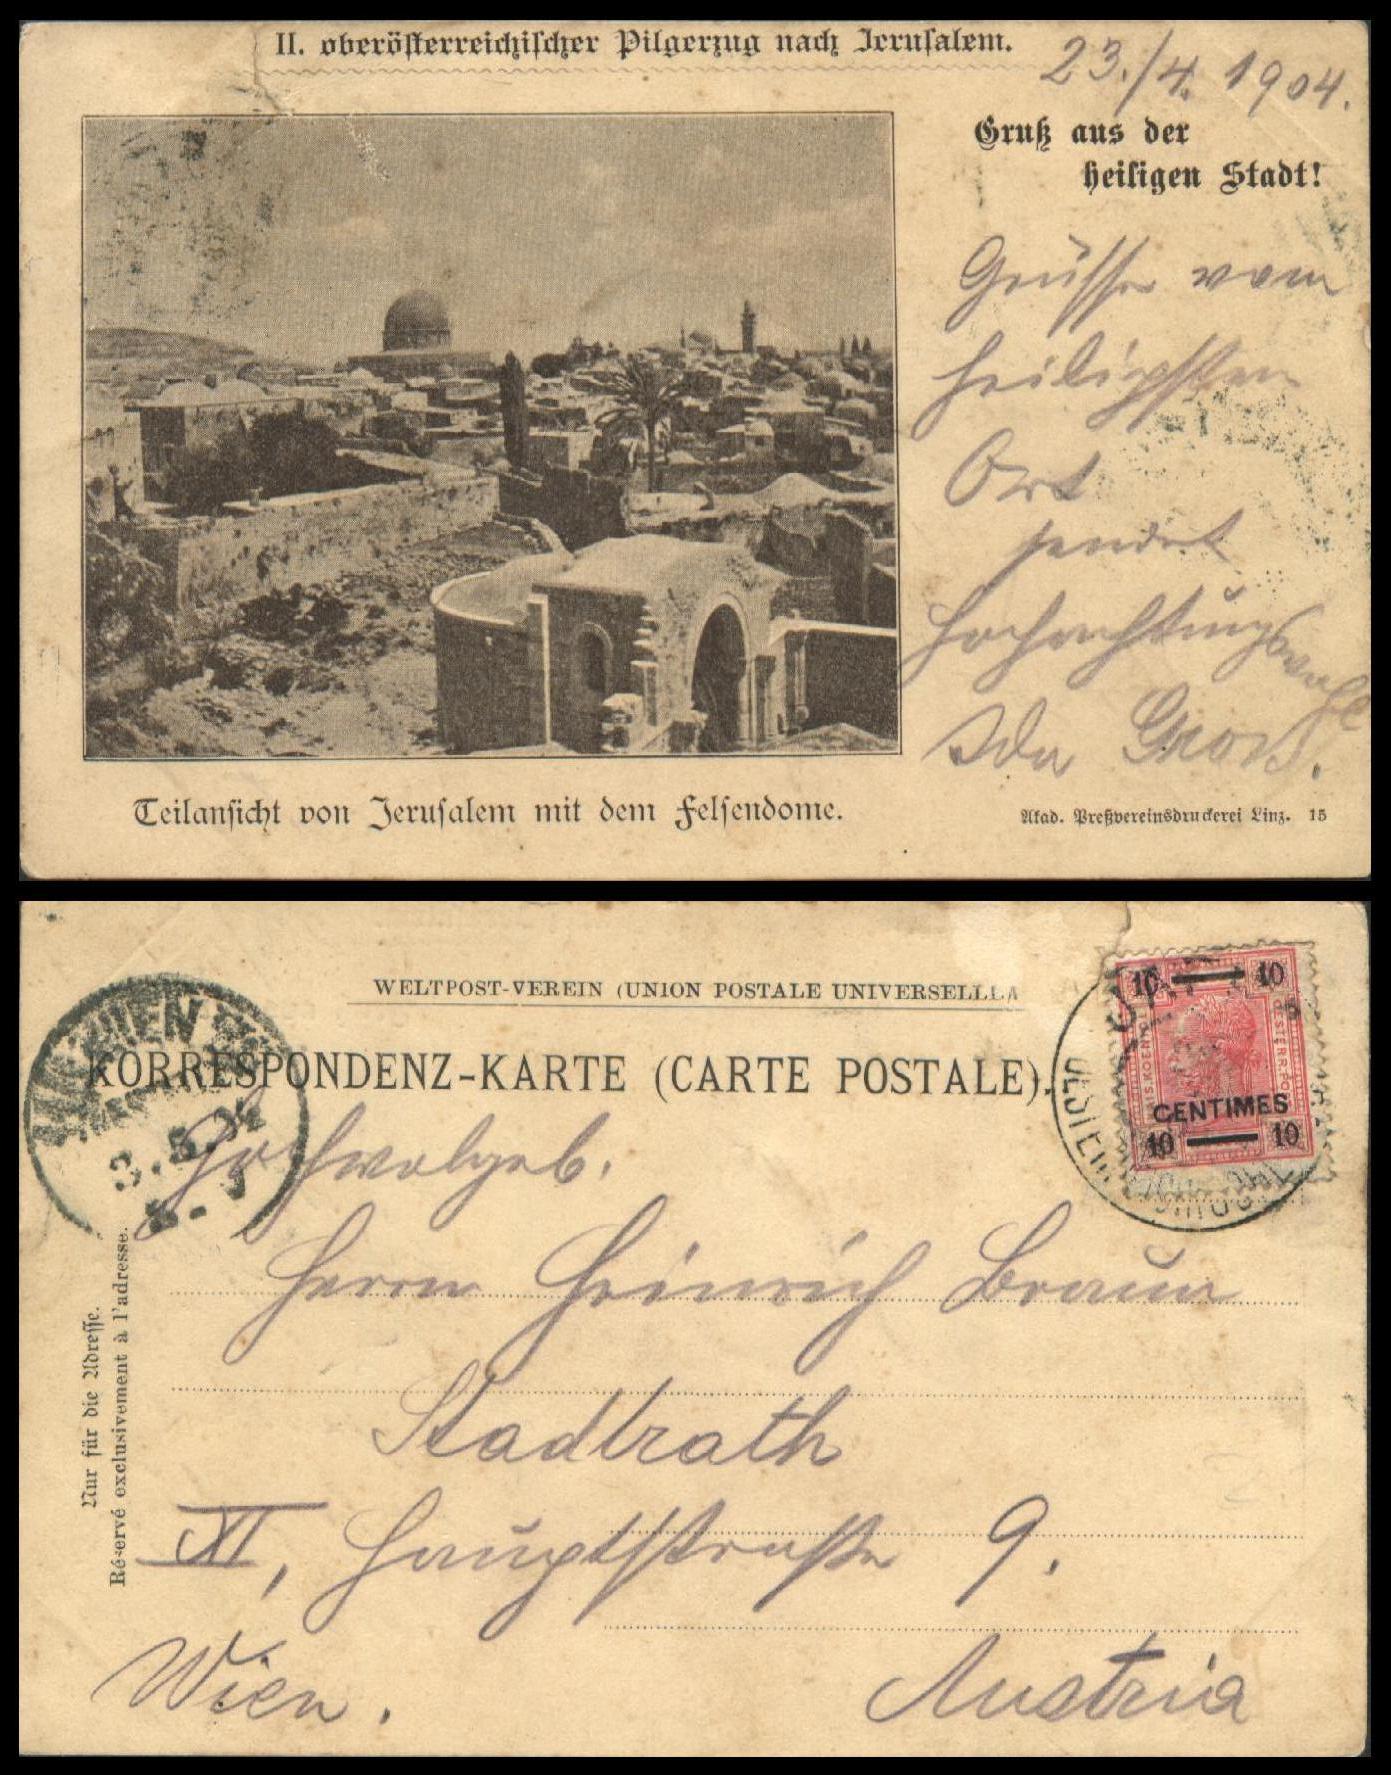 II. oberösterreichischer Pilgerzug nach Jerusalem.
23./4. 1904.
Gruß aus der
heiligen Stadt!
Grüsse vom
heiligsten
Ort
sendet
Hochachtungsvollst
Ida Gross.
Teilansicht von Jerusalem mit dem Felsendome.
Akad. Preßvereinsdruckerei Linz. 15
WELTPOST-VEREIN (UNION POSTALE UNIVERSELLE
KORRESPONDENZ-KARTE (CARTE POSTALE).
WIEN
3.5.04
10 10
CENTIMES
10 10
Hochwolgeb.
Herrn Heinrich Braun
Stadtrath
XI, Hauptstrasse 9.
Wien.
Austria
Nur für die Adresse.
Réservé exclusivement à l'adresse.